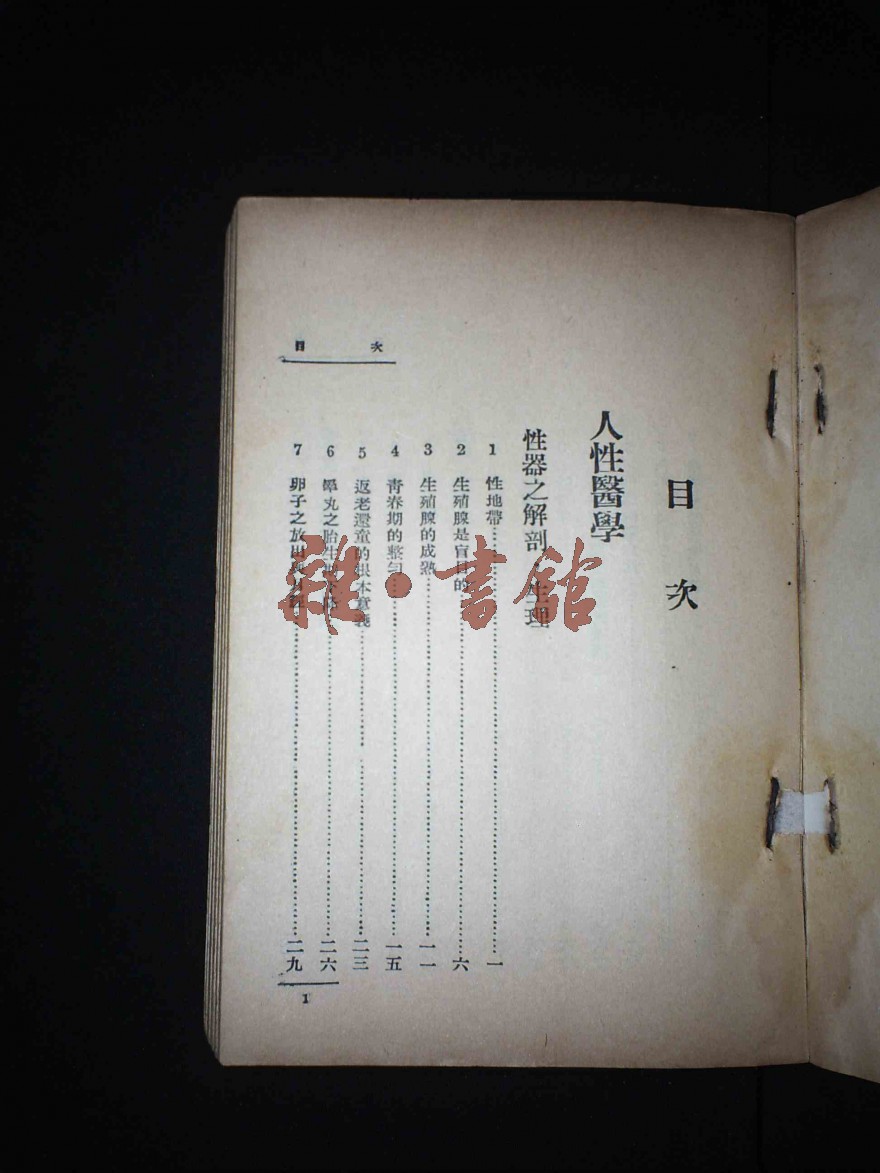 目次
人性醫學
性器之解剖 生理
1 性地帶……一
2 生殖腺是盲目的……六
3 生殖腺的成熟……一一
4 青春期的整……一五
5 返老還童的根本意義……二三
6 睾丸之胎生……二六
7 卵子之放出……二九
目次
1
雜·書館